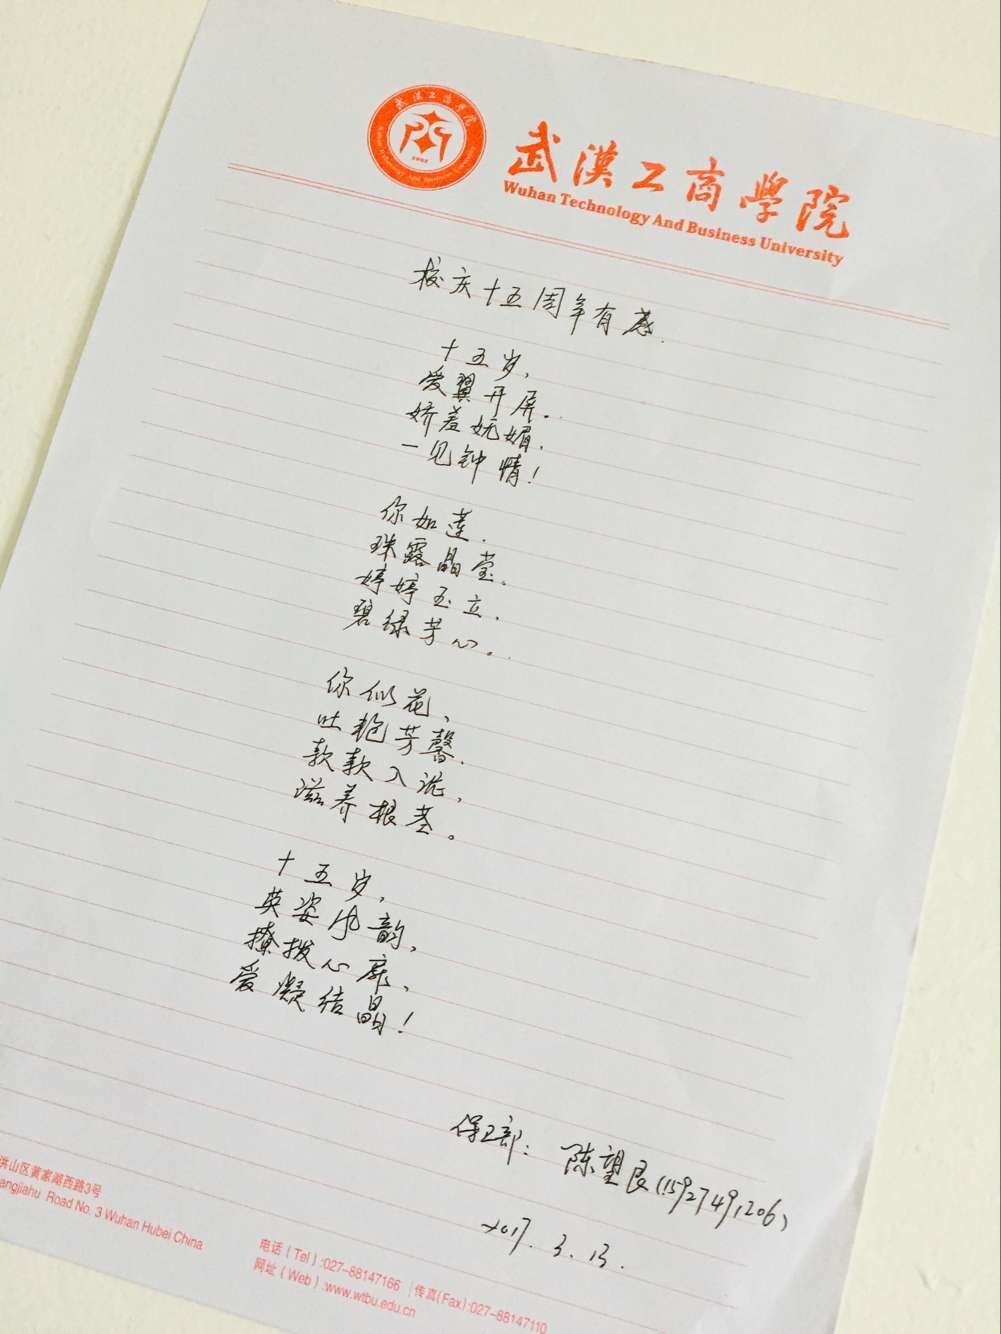 武漢工商學院
Wuhan Technology And Business University
校庆十五周年有感.
十五岁,
爱翼开屏.
娇羞妩媚.
一见钟情!
你如莲.
珠露晶莹.
婷婷玉立.
碧绿芳心。
你似花,
吐艳芳馨.
款款入泥,
滋养根茎。
十五岁,
英姿风韵,
撩拨心扉,
爱凝结晶!
保卫部: 陈望良(15927491206)
2017.3.13.
洪山区黄家湖西路3号
angjiahu Road No. 3 Wuhan Hubei China
电话(Tel):027-88147166 | 传真(Fax):027-88147110
网址(Web):www.wtbu.edu.cn